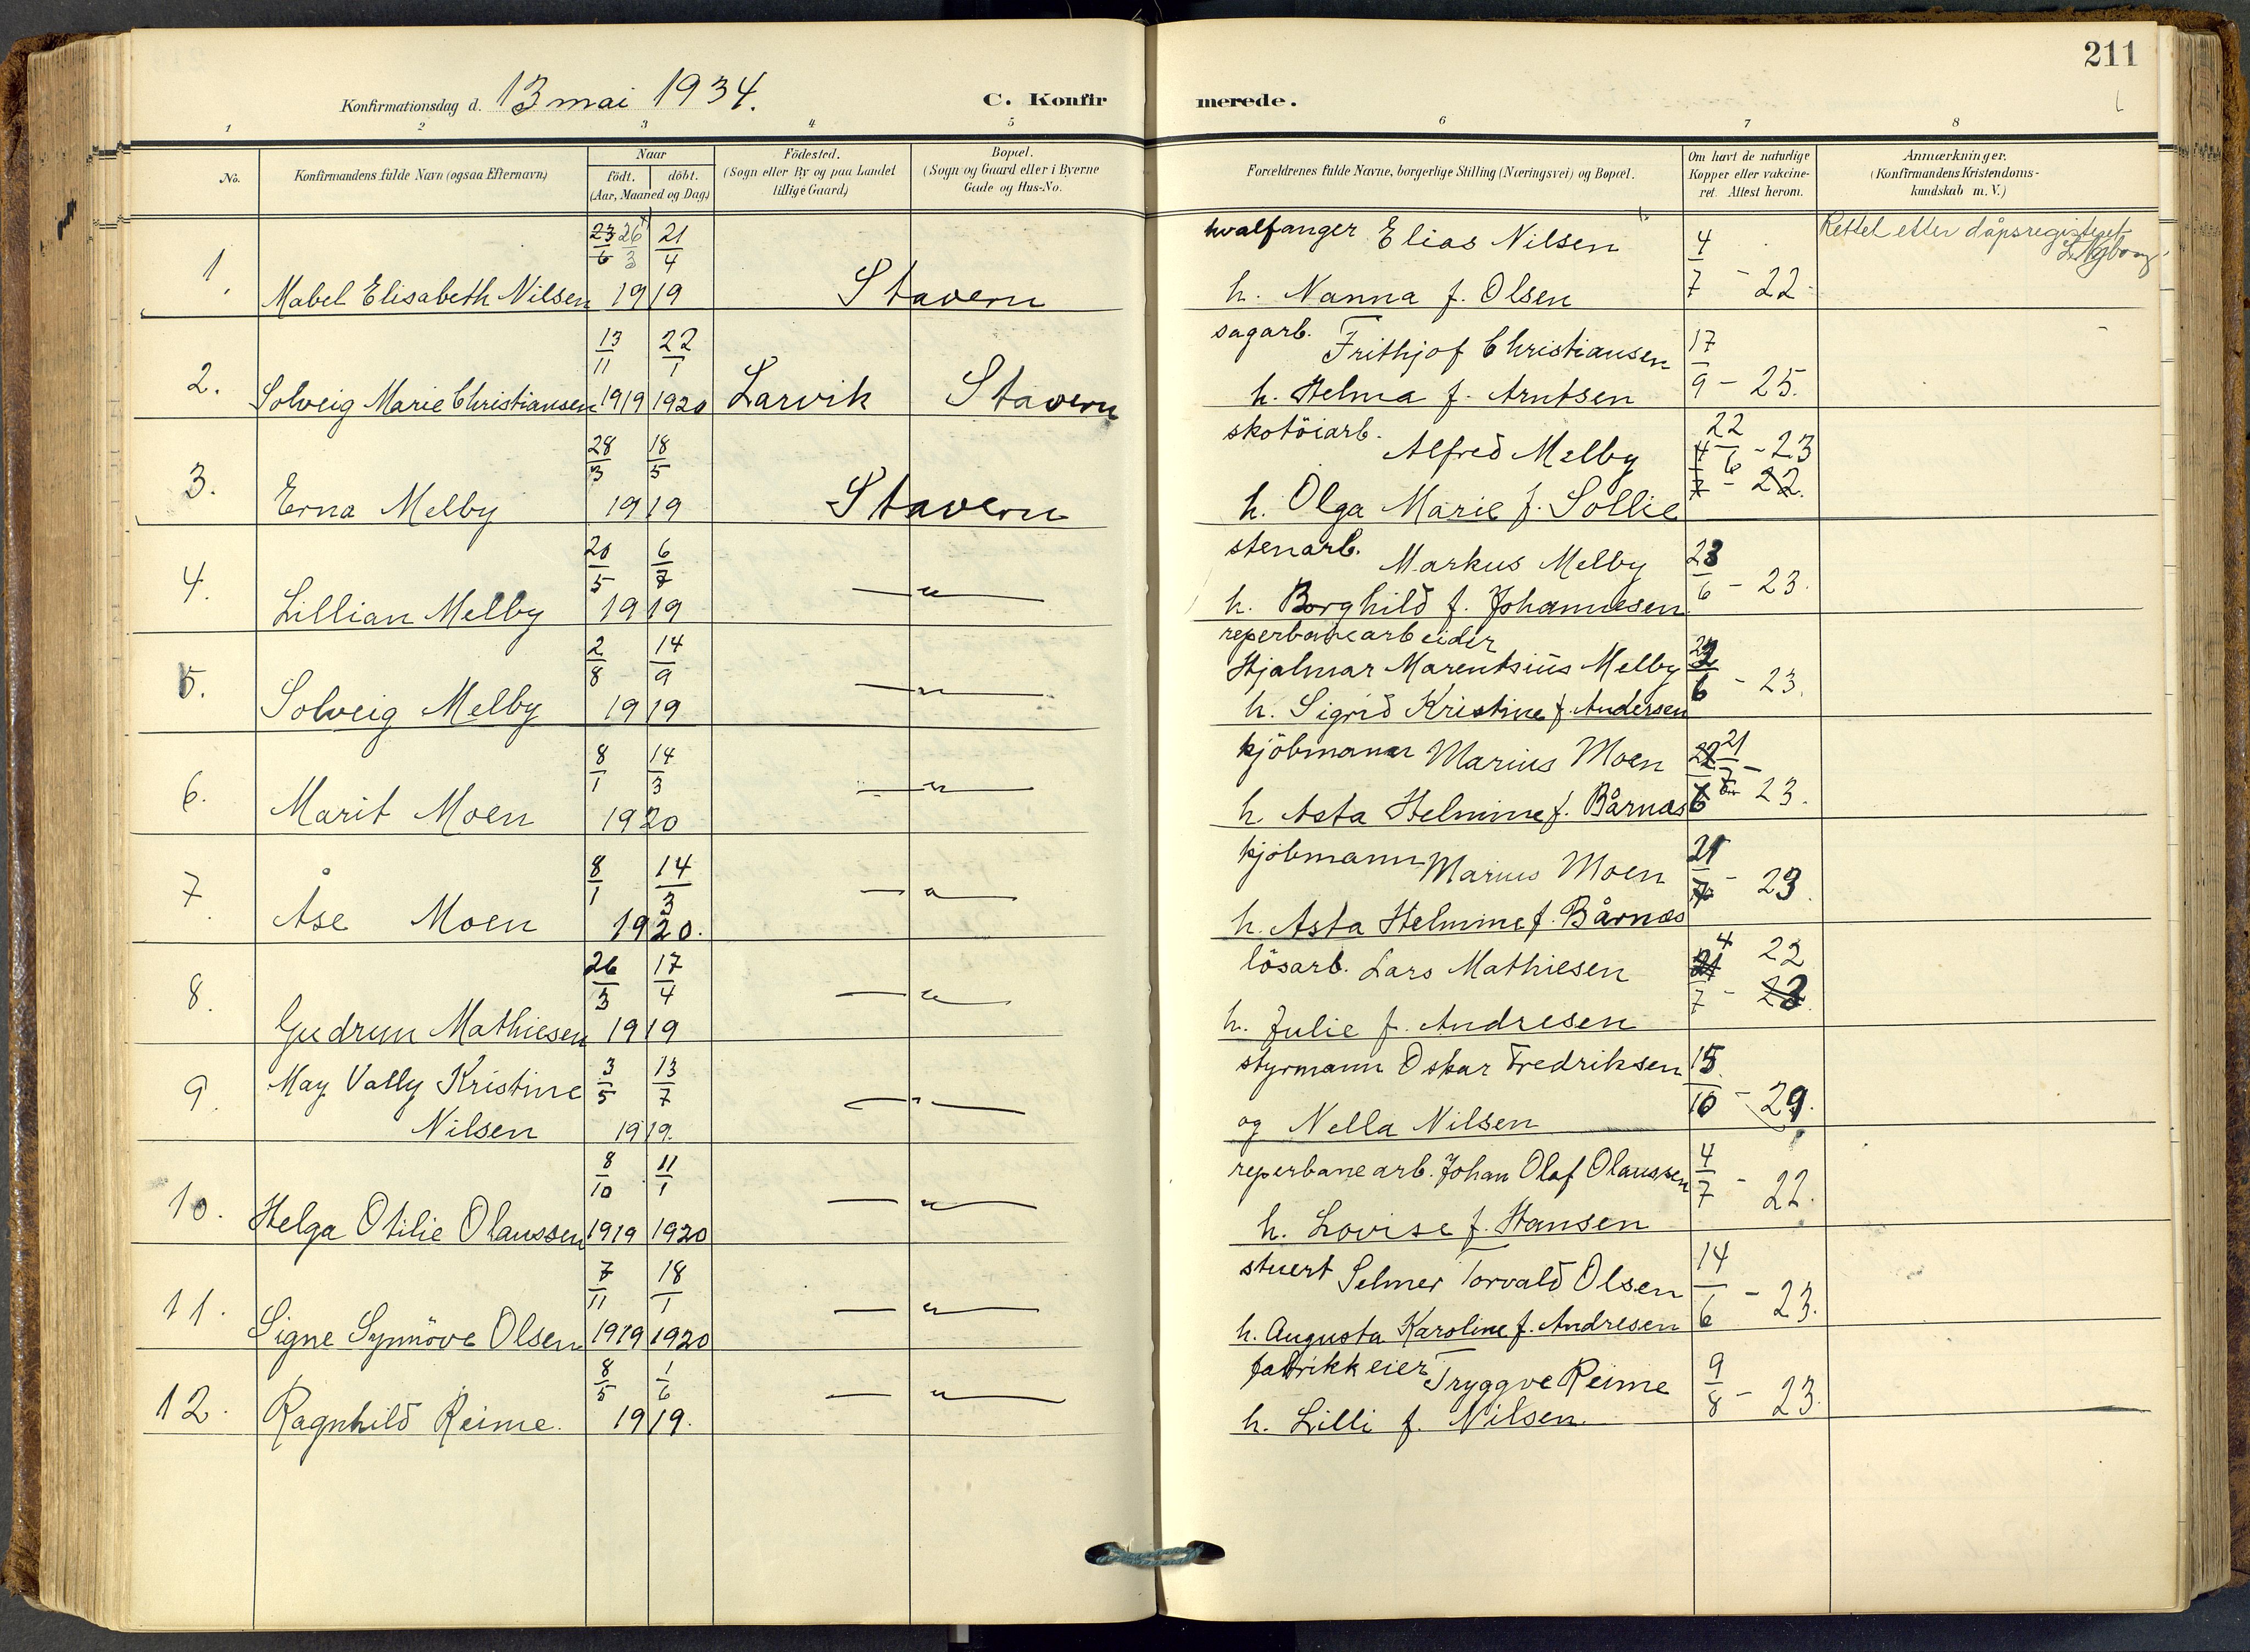 211
Konfirmationsdag d. 13 mai 1934.
C. Konfirmerede.
1 2 3 4 5 6 7 8
No.
Konfirmandens fulde Navn (ogsaa Efternavn)
Naar
födt. döbt.
(Aar, Maaned og Dag)
Födested.
(Sogn eller By og paa Landet
tillige Gaard)
Bopæl.
(Sogn og Gaard eller i Byerne
Gade og Hus-No.
Forældrenes fulde Navne, borgerlige Stilling (Næringsvei) og Bopæl.
Om havt de naturlige
Kopper eller vakcine-
ret. Attest herom.
Anmærkninger.
(Konfirmandens Kristendoms-
kundskab m. V.)
1. Mabel Elisabeth Nilsen 23/6 26/3 21/4 1919 Stavern
hvalfanger Elias Nilsen
h. Nanna f. Olsen
4/7 - 22
Rettet etter dåpsregisteret
2. Solveig Marie Christiansen 13/11 1919 22/1 1920 Larvik Stavern
sagarb. Frithjof Christiansen
h. Helma f. Arntsen
17/9 - 25.
3. Erna Melby 28/3 18/5 1919 Stavern
skotöiarb. Alfred Melby
h. Olga Marie f. Sollie
22/6 - 23
4/7 - 22.
4. Lillian Melby 20/5 6/7 1919 — " —
stenarb. Markus Melby
h. Borghild f. Johannesen
23/6 - 23.
5. Solveig Melby 2/8 14/9 1919 — " —
reperbanearbeider
Hjalmar Marentsius Melby
h. Sigrid Kristine f. Andersen
6 - 23.
6. Marit Moen 8/1 14/3 1920 — " —
kjöbmann Marius Moen
h. Asta Helmine f. Bårnas
21/7 - 23.
7. Åse Moen 8/1 14/3 1920. — " —
kjöbmann Marius Moen
h. Asta Helmine f. Bårnas
21/7 - 23.
8. Gudrun Mathiesen 26/3 17/4 1919 — " —
lösarb. Lars Mathiesen
h. Julie f. Andresen
4 22
21/7 - 23
9. May Vally Kristine
Nilsen 3/5 13/7 1919. — " —
styrmann Oskar Fredriksen
og Nella Nilsen
15/10 - 29.
10. Helga Otilie Olaussen 8/10 1919 11/1 1920 — " —
reperbanearb. Johan Olaf Olaussen
h. Lovise f. Hansen
4/7 - 22.
11. Signe Synnöve Olsen 7/11 1919 18/1 1920 — " —
stuert Selmer Torvald Olsen
h. Augusta Karoline f. Andresen
14/6 - 23.
12. Ragnhild Reime. 8/5 1/6 1919. — " —
fabrikkeier Tryggve Reime
h. Lilli f. Nilsen.
9/8 - 23.